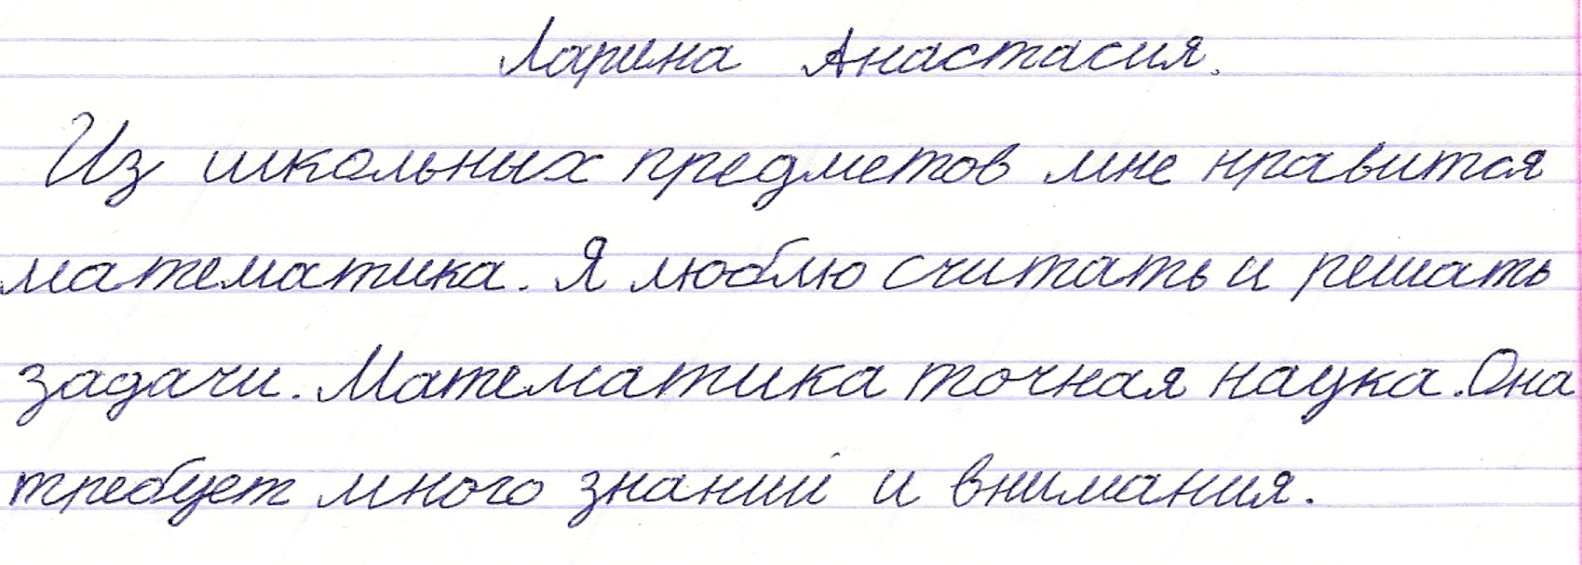 Ларина Анастасия.
Из школьных предметов мне нравится
математика. Я люблю считать и решать
задачи. Математика точная наука. Она
требует много знаний и внимания.